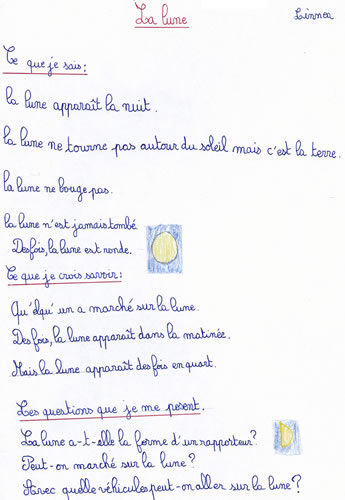 La lune
Linnea
Ce que je sais:
la lune apparaît la nuit.
la lune ne tourne pas autour du soleil mais c'est la terre.
la lune ne bouge pas.
la lune n'est jamais tombé.
Des fois, la lune est ronde.
Ce que je crois savoir:
Qu'elqu'un a marché sur la lune.
Des fois, la lune apparaît dans la matinée.
Mais la lune apparaît des fois en quart.
Les questions que je me posent.
La lune a-t-elle la forme d'un rapporteur?
Peut-on marché sur la lune?
Avec quelle véhicules peut-on aller sur la lune?